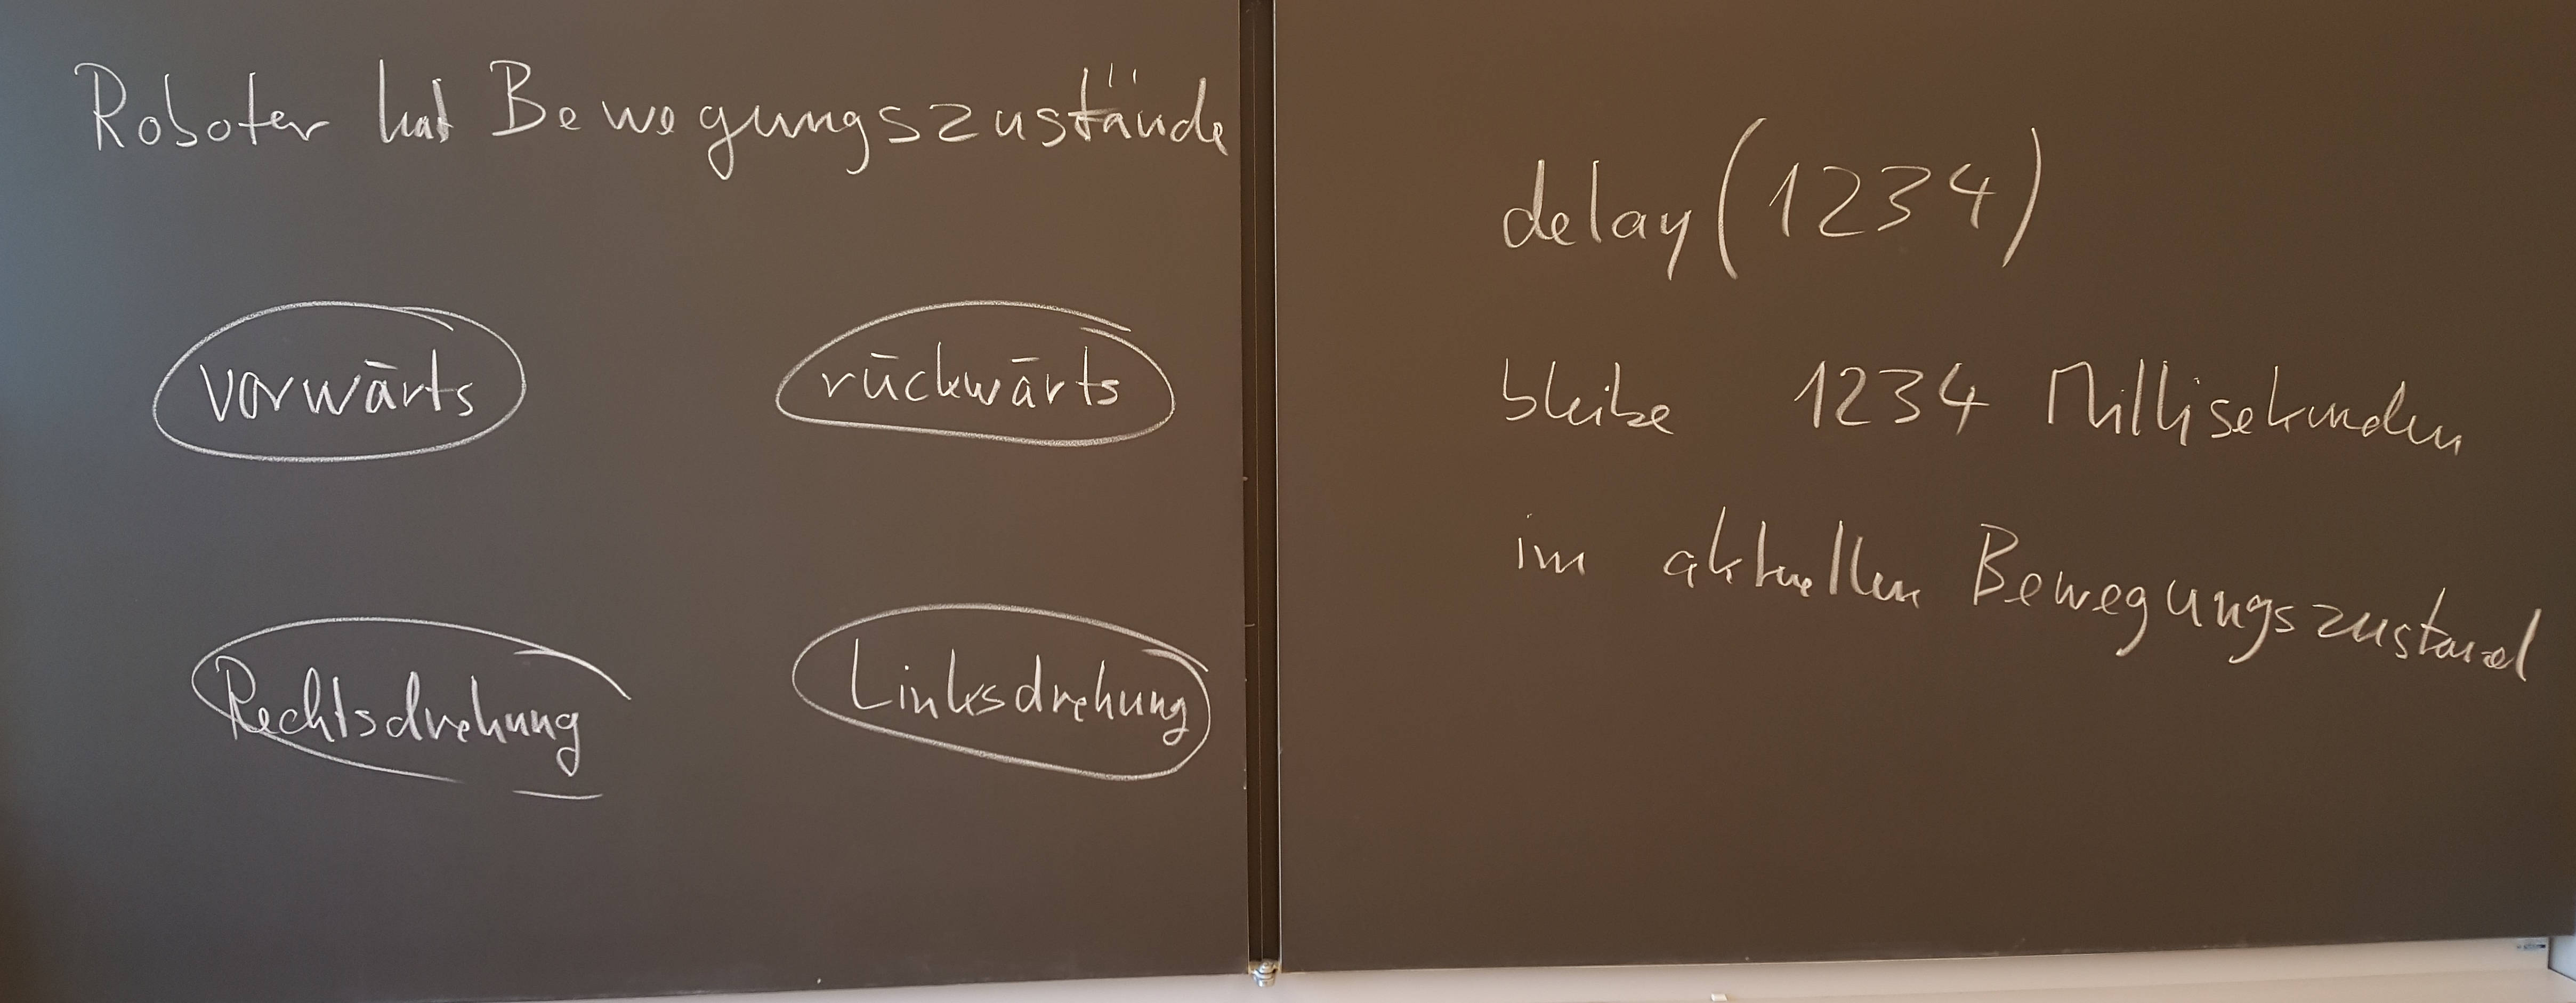 Roboter hat Bewegungszustände
vorwärts
rückwärts
Rechtsdrehung
Linksdrehung
delay(1234)
bleibe 1234 Millisekunden
im aktuellen Bewegungszustand